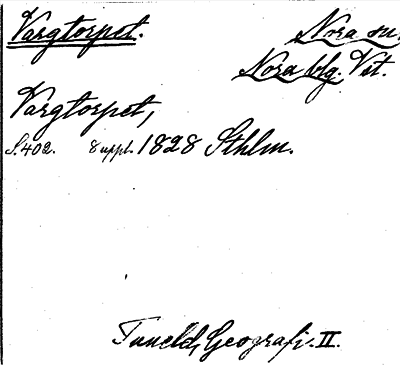 Vargtorpet. Nora sn.
Nora blg. Vst.
Vargtorpet,
S. 402. 8 uppl. 1828 Sthlm.
Tuneld, Geografi. II.